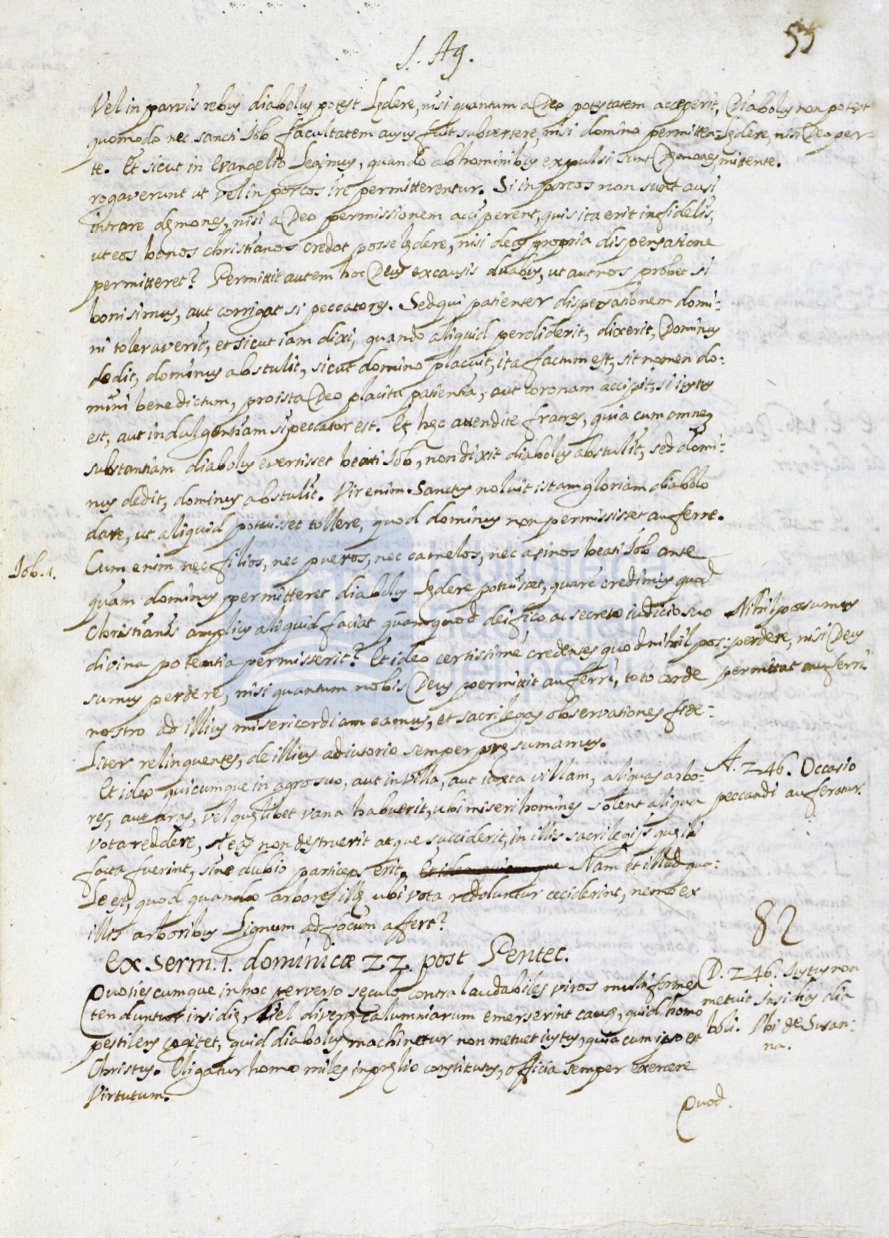 S. Ag.
55
Vel in parvis rebus diabolus potest lędere, nisi quantum a Deo potestatem acceperit,
quomodo nec sancti Iob facultatem ausus fuit subvertere, nisi domino permitten-
te. Et sicut in Evangelio legimus, quando ab hominibus expulsi sunt Dęmones,
rogaverunt ut vel in porcos ire permitterentur. Si in porcos non sunt ausi
intrare dęmones, nisi a Deo permissionem acciperent, quis ita erit infidelis,
ut eos bonos christianos credat posse lędere, nisi deus propria dispensatione
permitteret? Permittit autem hoc Deus ex causis duabus, ut aut nos probet si
boni simus, aut corrigat si peccatores. Sed qui patienter dispensationem domi-
ni toleraverit, et sicut iam dixi, quando aliquid perdiderit, dixerit, Dominus
dedit, dominus abstulit, sicut domino placuit, ita factum est, sit nomen do-
mini benedictum, pro ista Deo placita patientia, aut coronam accipit, si iustus
est, aut indulgentiam si peccator est. Et hęc attendite fratres, quia cum omnem
substantiam diabolus evertisset beati Iob, non dixit diabolus abstulit, sed domi-
nus dedit, dominus abstulit. Vir enim Sanctus noluit istam gloriam diabolo
dare, ut aliquid potuisset tollere, quod dominus non permississet auferre.
Cum enim nec filios, nec pueros, nec camelos, nec asinos beati Iob ante
quam dominus permitteret diabolus lędere potuisset, quare credimus quod
Christianis amplius aliquid faciat quam quod deifico ac secreto iudicio suo
divina potentia permisserit? Et ideo certissime credentes quod nihil pos-
sumus perdere, nisi quantum nobis Deus permittit auferri, toto corde
nostro ad illius misericordiam eamus, et sacrilegas observationes fide-
liter relinquentes, de illius adiutorio semper pręsumamus.
Et ideo quicumque in agro suo, aut in villa, aut iuxta villam, aliquas arbo-
res, aut aras, vel quęlibet vana habuerit, ubi miseri homines solent aliqua
vota reddere, si eas non destruerit atque succiderit, in illis sacrilegijs quę illi
facta fuerint, sine dubio particeps erit. Et ideo quicumque Nam et illud qua-
le est, quod quando arbores illę ubi vota redduntur ceciderint, nemo ex
illis arboribus lignum ad focum affert?
Ex Serm. 1. dominicæ 22. post Pentec.
Quotiescumque in hoc perverso sęculo contra laudabiles viros multiformes
tenduntur insidię, vel diversę calumniarum emerserint causę, quid homo
pestilens cogitet, quid diabolus machinetur non metuet iustus, quia cum ipso est
Christus. Eligatur homo miles in pręlio constitutus, officia semper exercere
Virtutum.
Quod.
Diabolus non potest
lędere, nisi Deo per-
mittente.
Iob. 1.
Nihil possumus
perdere, nisi Deus
permittat auferri
A. 246. Occasio
peccandi auferatur.
82
D. 246. Iustus non
metuit insidias dia
boli. Ubi de Susan-
na.
biblioteca
nacional
del perú